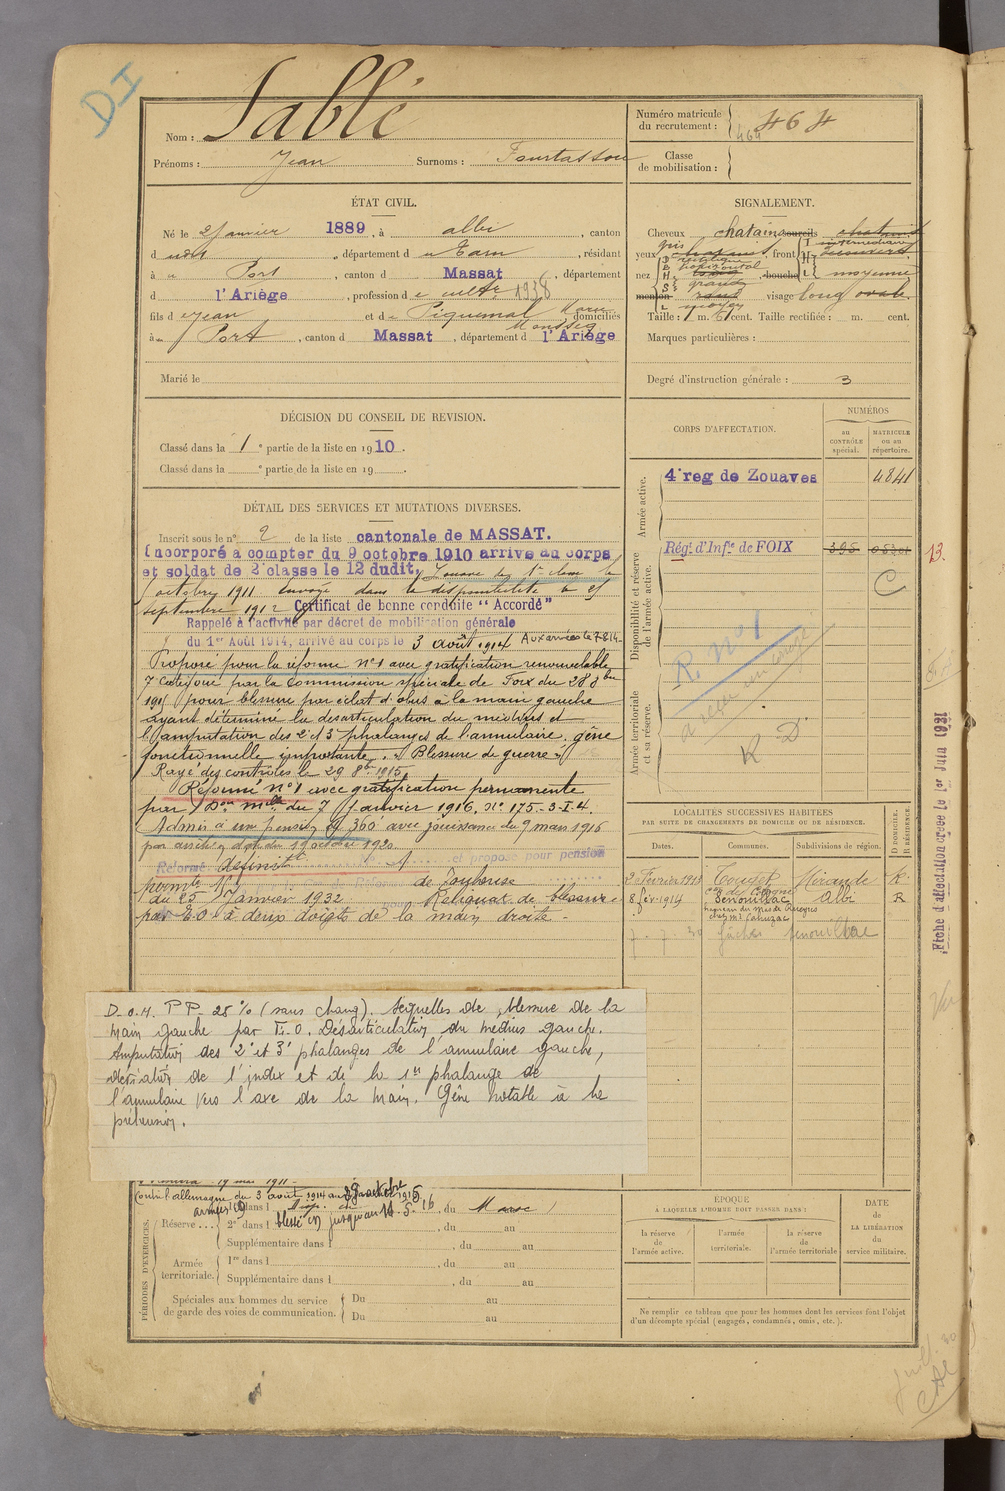 DI
Nom : Sablé
Prénoms : Jean Surnoms : Fourtassou
Numéro matricule du recrutement : 464
464
Classe de mobilisation :
ÉTAT CIVIL.
Né le 2 Janvier 1889, à albi, canton
d udit, département d u Tarn, résidant
à Port, canton d Massat, département
d l'Ariège, profession d e cultr 1938
fils d e Jean et d e Piquemal Marie domiciliés
à Port, canton d Massat, département d l'Ariège
Marié le
SIGNALEMENT.
Cheveux chatains sourcils chatains
yeux gris front intermédiaire
nez rectiligne horizontal bouche moyenne
grand
menton rond visage long ovale
moyen
Taille : 1 m. 61 cent. Taille rectifiée : m. cent.
Marques particulières :
Degré d'instruction générale : 3
DÉCISION DU CONSEIL DE REVISION.
Classé dans la 1e partie de la liste en 1910.
Classé dans la e partie de la liste en 19 .
CORPS D'AFFECTATION.
NUMÉROS
au CONTRÔLE spécial.
MATRICULE ou au répertoire.
Armée active.
4e reg de Zouaves 4841
Disponibilité et réserve de l'armée active.
Régt d'Infie de FOIX 395
13.
C
R. N°1
Armée territoriale et sa réserve.
R D
DÉTAIL DES SERVICES ET MUTATIONS DIVERSES.
Inscrit sous le n° 2 de la liste cantonale de MASSAT.
Incorporé à compter du 9 octobre 1910 arrivé au corps
et soldat de 2e classe le 12 dudit. Zouave de 1e classe le
octobre 1911 Envoyé dans la disponibilité le 25
septembre 1912 Certificat de bonne conduite "Accordé"
Rappelé à l'activité par décret de mobilisation générale
du 1er Août 1914, arrivé au corps le 3 août 1914 Aux armées le 7-8-14-
Proposé pour la réforme n°1 avec gratification renouvelable
7e catégorie par la Commission spéciale de Foix du 28 8bre
1915 pour blessure par éclat d'obus à la main gauche
ayant déterminé la désarticulation du médius et
l'amputation des 2e et 3e phalanges de l'annulaire. gêne
fonctionnelle importante. "Blessure de guerre"
Rayé des contrôles le 29 8bre 1915
Réformé n°1 avec gratification permanente
par Don mlle du 7 Janvier 1916. N° 175-3-I-4.
Admis à une pension de 360f avec jouissance du 9 mars 1916
par arrêté en date du 19 octobre 1920.
Réformé définitt et proposé pour pension
permte N°1 de Toulouse
du 25 Janvier 1932 Reliquat de blessure
par E.O. à deux doigts de la main droite -
LOCALITÉS SUCCESSIVES HABITÉES
PAR SUITE DE CHANGEMENTS DE DOMICILE OU DE RÉSIDENCE.
Dates. Communes. Subdivisions de région. D DOMICILE. R RÉSIDENCE.
2 Février 1913 Touget Mirande R
8 fév. 1914 Senouillac Albi R
chez Mr Cahuzac
7 - 7 - 30 Senouillac
Fiche d'affectation créée le 1er Juin 1931
D.O.M. P P. 25% (sans chang). Séquelles de blessure de la
main gauche par E.O. Désarticulation du médius gauche.
Amputation des 2e et 3e phalanges de l'annulaire gauche,
déviation de l'index et de la 1ère phalange de
l'annulaire vers l'axe de la main. Gêne notable à la
préhension.
Contre l'allemagne du 3 août 1914 au 28 octobre 1915
PÉRIODES D'EXERCICES.
Réserve... 1re dans l , du Maroc
2e dans l , du au
Supplémentaire dans l , du au
Armée territoriale. 1re dans l , du au
Supplémentaire dans l , du au
Spéciales aux hommes du service de garde des voies de communication. Du au
Du au
ÉPOQUE
À LAQUELLE L'HOMME DOIT PASSER DANS :
la réserve de l'armée active. l'armée territoriale. la réserve de l'armée territoriale
DATE de LA LIBÉRATION du service militaire.
Ne remplir ce tableau que pour les hommes dont les services font l'objet
d'un décompte spécial (engagés, condamnés, omis, etc.).